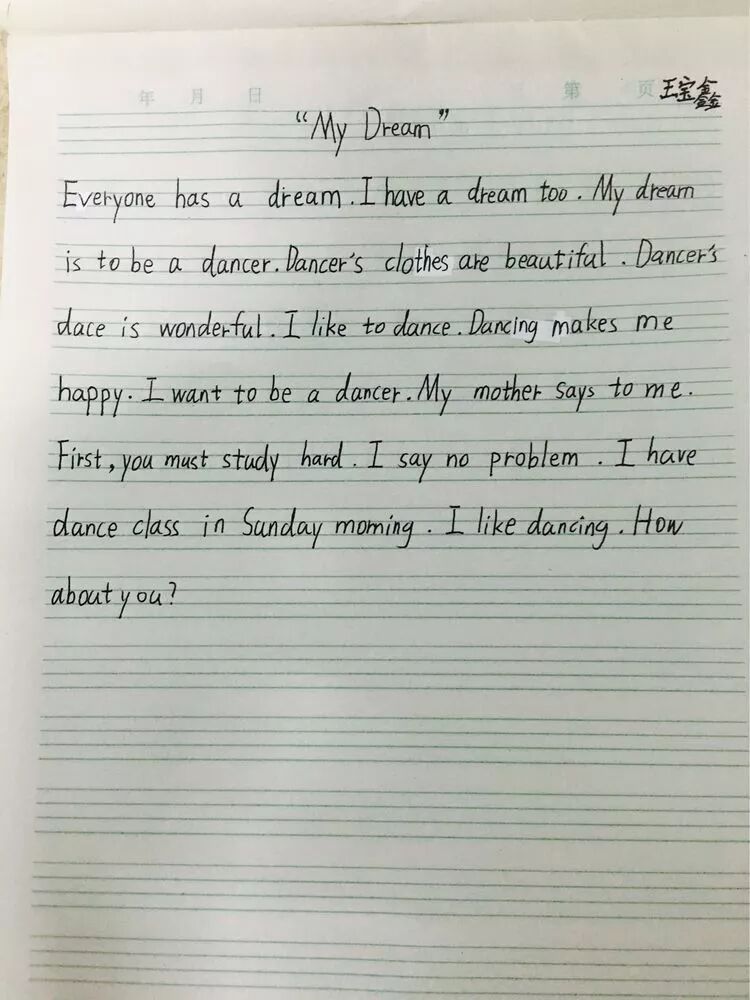 年 月 日 第 页 王宝鑫
“My Dream”
Everyone has a dream. I have a dream too. My dream
is to be a dancer. Dancer's clothes are beautiful. Dancer's
dace is wonderful. I like to dance. Dancing makes me
happy. I want to be a dancer. My mother says to me.
First, you must study hard. I say no problem. I have
dance class in Sunday morning. I like dancing. How
about you?